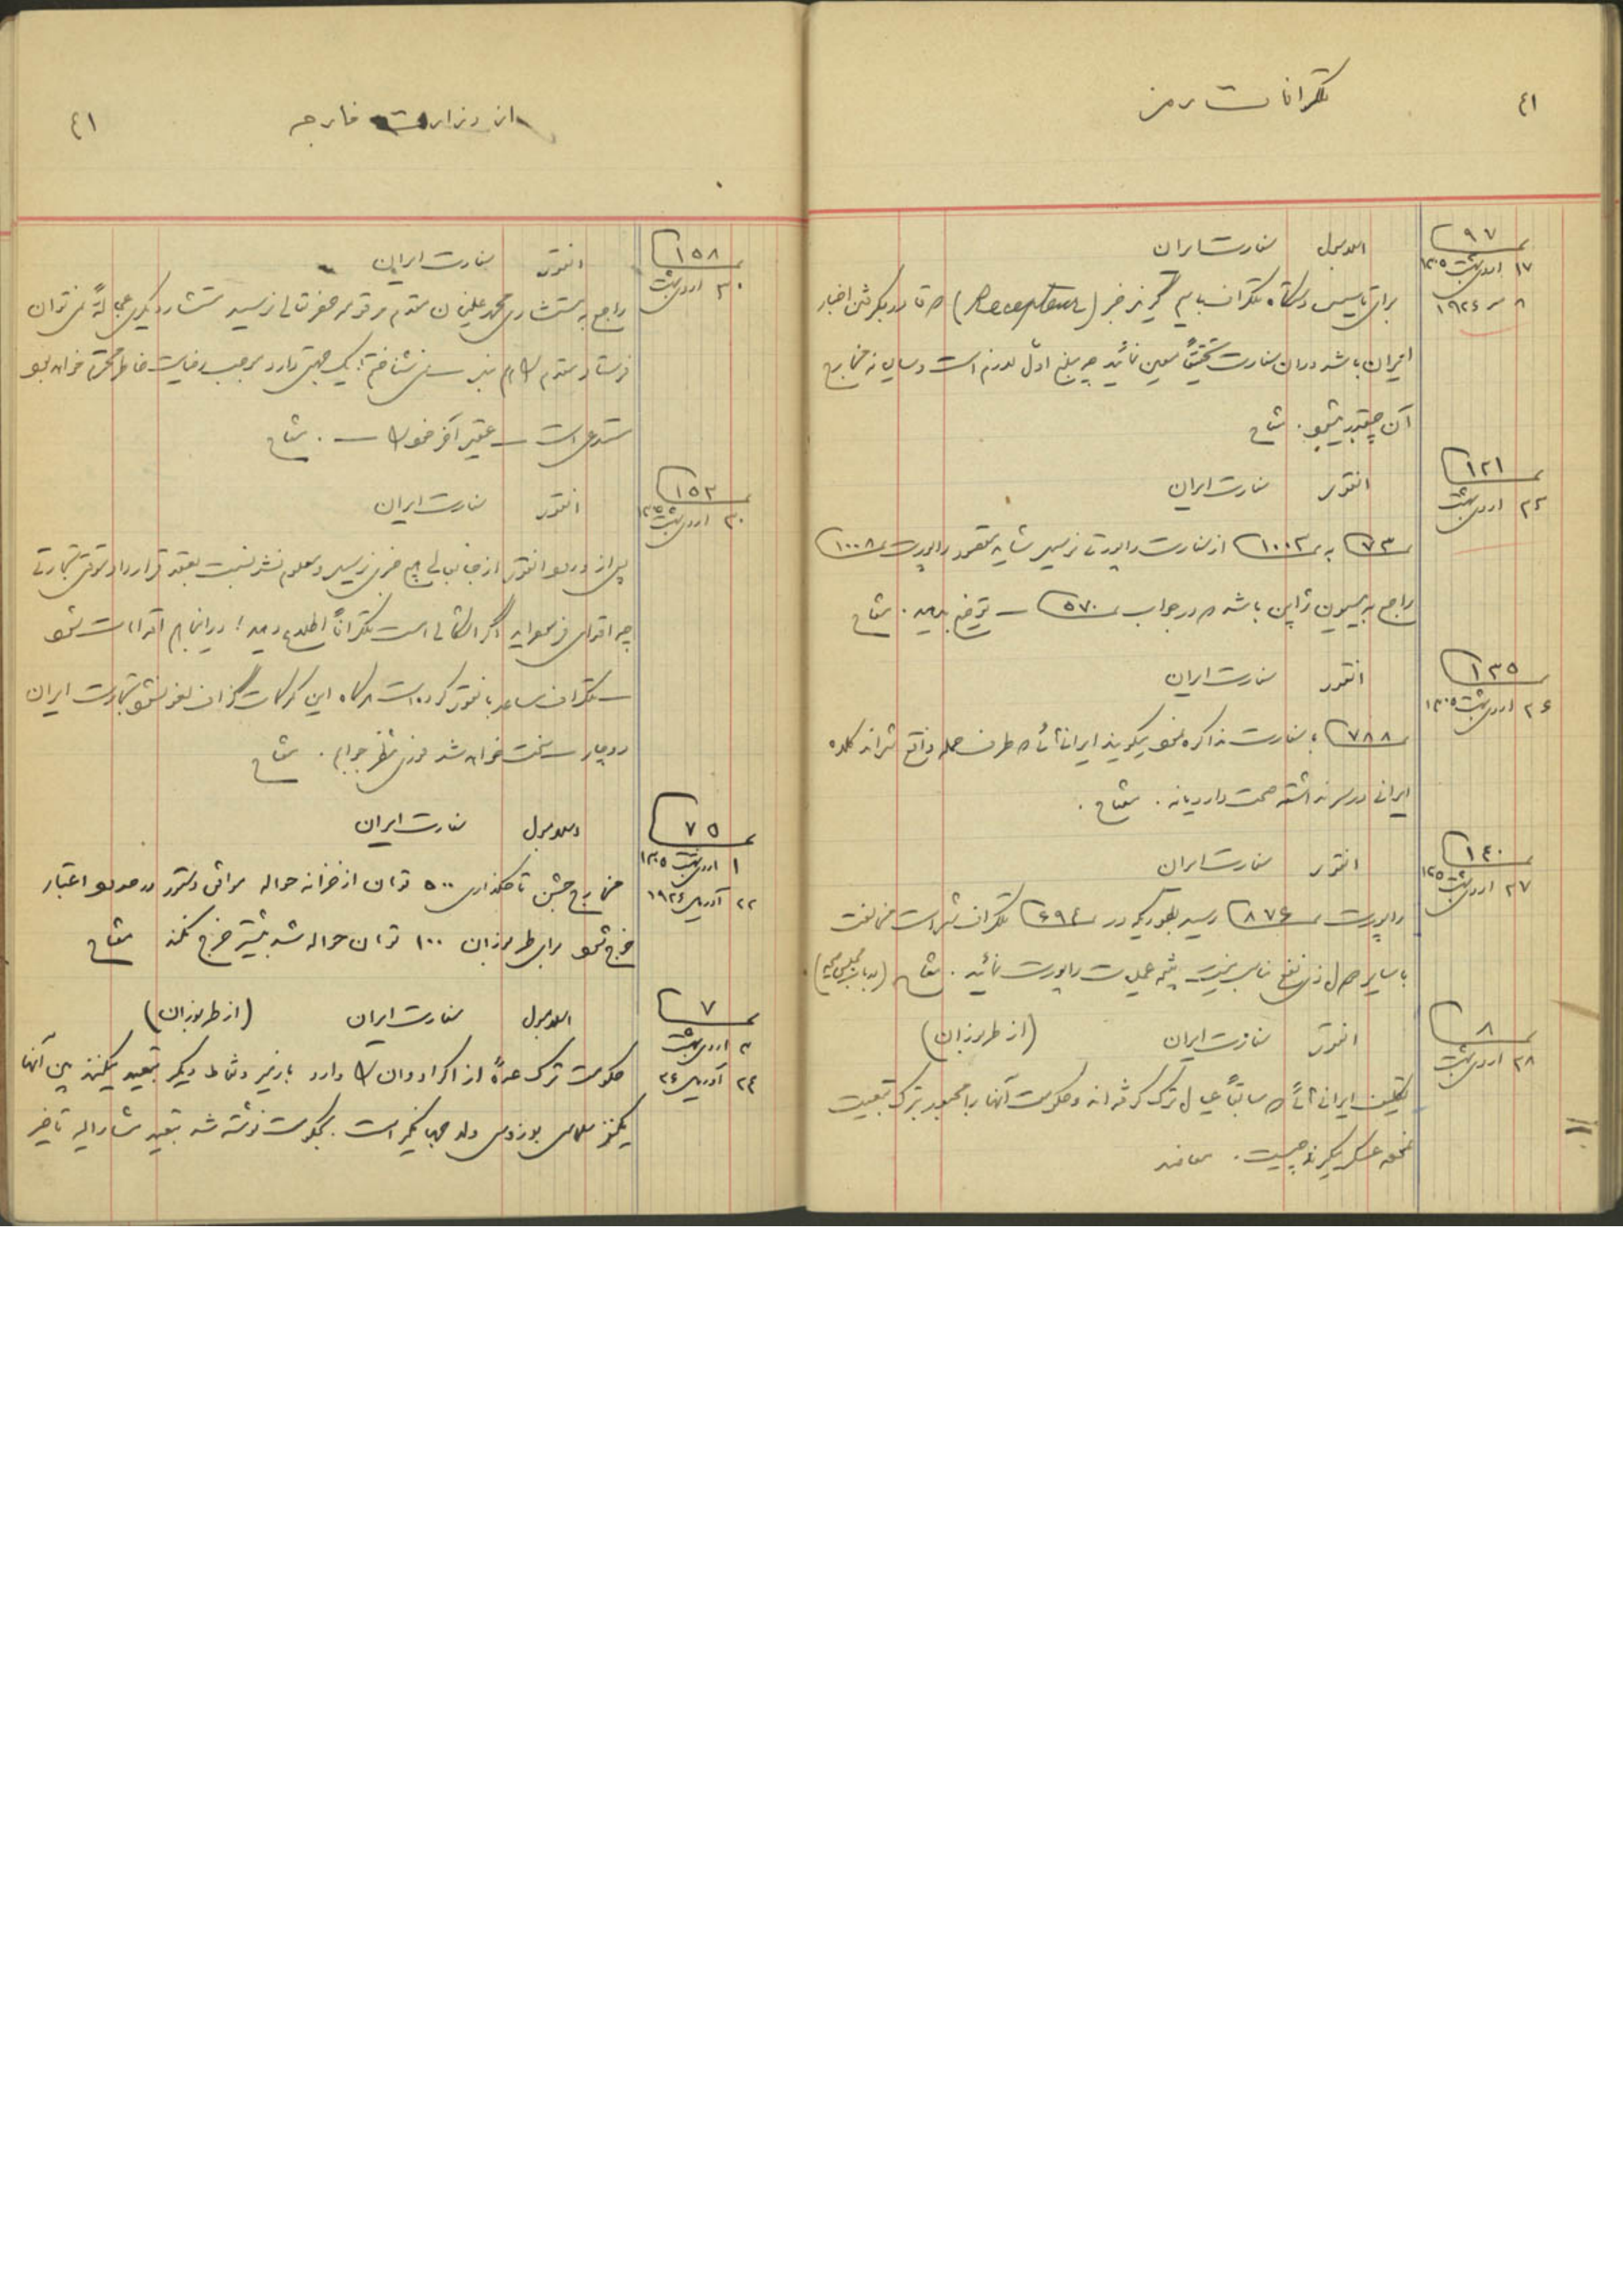 ٤١
تلگرافات رمز
نمره ٩٧
١٧ اردیبهشت ١٣٠٥
٨ مه ١٩٢٦
اسلامبول سفارت ایران
برای تأسیس دستگاه تلگراف بی‌سیم گیرنده خبر (Recepteur) که قادر بگرفتن اخبار
ایران باشد در آن سفارت تحقیقاً معین نمائید چه مبلغ اول لازم است و سالیانه مخارج
آن چقدر میشود. مفتاح
نمره ١٢١
٢٤ اردیبهشت
انقوره سفارت ایران
نمره ٧٣ به نمره ١٠٠٢ از سفارت راپورتی نرسید شاید مقصود راپورت نمره ١٠٠٨
راجع به میسیون ژاپن باشد که در جواب نمره ٥٧٠ توضیح بدهید. مفتاح
نمره ١٣٥
٢٦ اردیبهشت ١٣٠٥
انقوره سفارت ایران
نمره ٧٨٨ با سفارت مذاکره میگویند ایرانیانی که طرف حمله واقع شده‌اند کلاه
ایرانی در سر نداشته صحت دارد یا نه. مفتاح.
نمره ١٤٠
٢٧ اردیبهشت ١٣٠٥
انقوره سفارت ایران
راپورت نمره ٨٧٦ رسید بطوریکه در نمره ٦٩٤ تلگراف شده است مخالفت
با سایر دول ذی نفع مناسب نیست نتیجه عملیات راپورت نمائید. مفتاح
نمره ٨
٢٨ اردیبهشت
انقوره سفارت ایران (از طرابوزان)
تکلیف ایرانیانی که سابقاً عیال ترک گرفته‌اند و حکومت آنها را مجبور بترک تبعیت
نموده عسکر میگیرند چیست. ساعد
از وزارت خارجه
٤١
نمره ١٥٨
٣٠ اردیبهشت
انقوره سفارت ایران
راجع به مستشاری محمد علیخان مقدم مرقومه حضرتعالی نرسید مستشار دیگری عجالةً نمیتوان
فرستاد مقدم هم جهتی دارد موجب رضایت خاطر محترم خواهد بود
مستدعی است عقیده آخر مفتاح
نمره ١٥٣
٣٠ اردیبهشت ١٣٠٥
انقوره سفارت ایران
پس از ورود انقوره از جنابعالی هیچ خبری نرسید و معلوم نشد نسبت بعقد قرارداد موقتی تجارتی
چه اقدامی فرموده‌اید اگر اشکالی است تلگرافاً اطلاع دهید در اینجا هم اقدامات شود
تلگراف ساعد بانقوره کرده است هرگاه این گمرکات گزاف لغو نشود تجارت ایران
دوچار سخت خواهد شد فوری منتظر جوابم. مفتاح
نمره ٧٥
١ اردیبهشت ١٣٠٥
٢٢ آوریل ١٩٢٦
اسلامبول سفارت ایران
مخارج جشن تاجگذاری ٥٠٠ تومان از خزانه حواله موافق دستور در حدود اعتبار
خرج شود برای طرابوزان ١٠٠ تومان حواله شد بیشتر خرج نکند مفتاح
نمره ٧
٣ اردیبهشت
٢٤ آوریل ٢٦
اسلامبول سفارت ایران (از طرابوزان)
حکومت ترک عدهٔ از اکراد وان را دارد بازمیر و نقاط دیگر تبعید میکنند بین آنها
یکنفر سلماسی است. بحکومت نوشته شد تبعید مشارالیه تأخیر